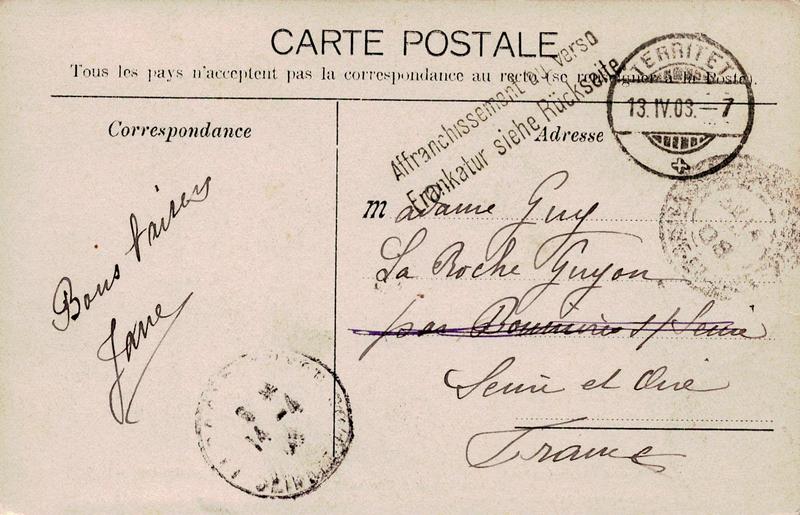 CARTE POSTALE
Tous les pays n'acceptent pas la correspondance au recto (se renseigner à la Poste).
Affranchissement au verso
Frankatur siehe Rückseite
TERRITET
13.IV.03.-7
Correspondance
Adresse
Madame Guy
La Roche Guyon
par Bonnières s/ Seine
Seine et Oise
France
Bons baisers
Jane